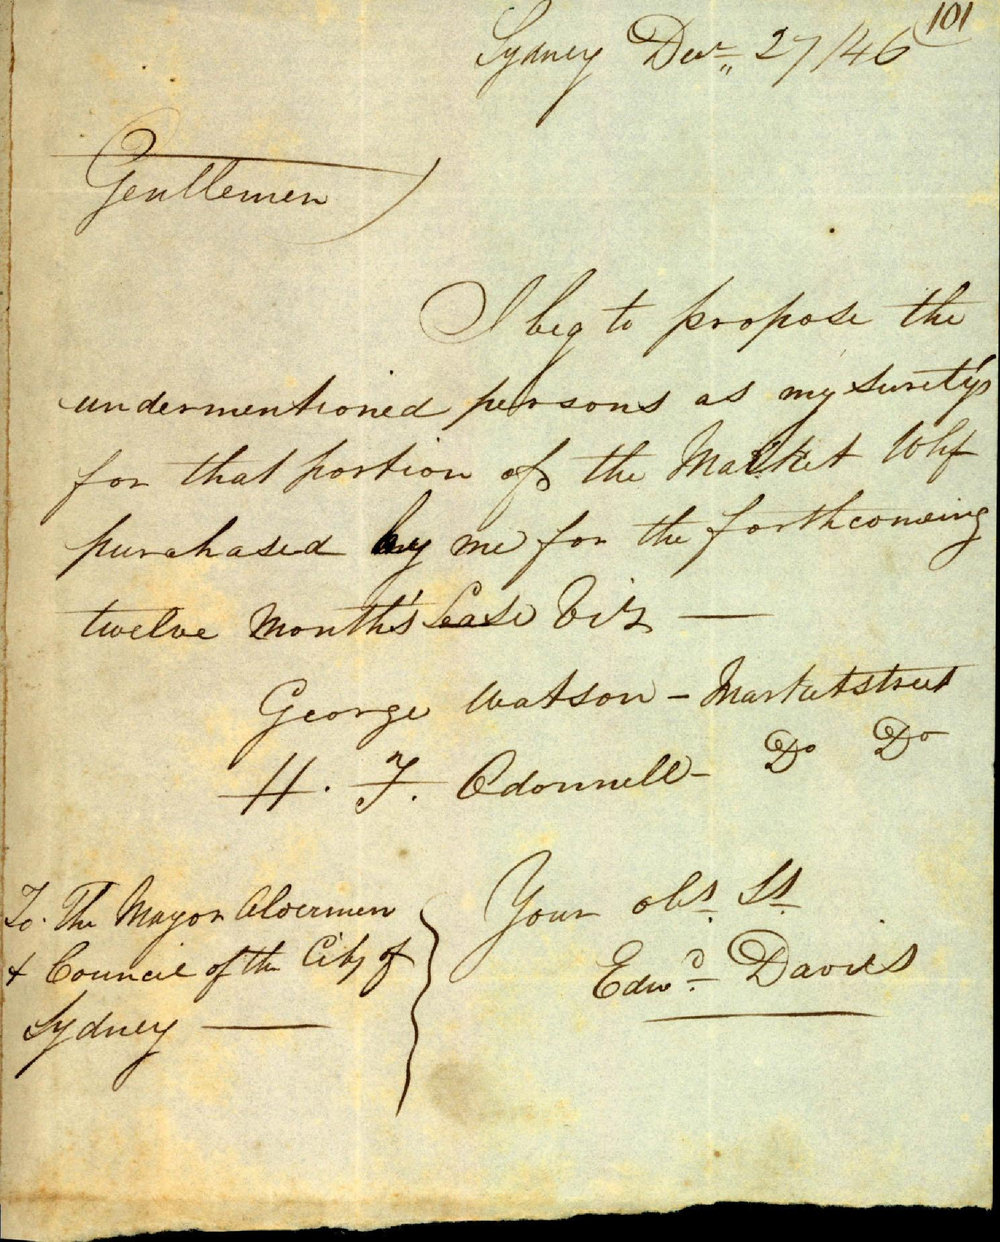 101
Sydney Decr 27/46
Gentlemen
I beg to propose the
undermentioned persons as my surety's
for that portion of the Market Whf
purchased by me for the forthcoming
twelve Month's Lease Viz —
George Watson - Marketstreet
H. F. Odonnell - Do Do
Your obt. St.
Edwd. Davies
To. The Mayor Aldermen
& Council of the City of
Sydney —